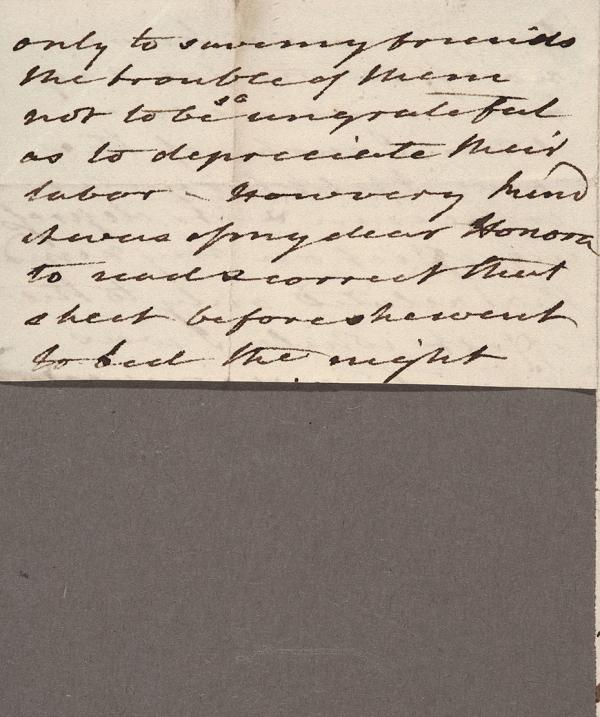 only to save my friends
the trouble of them
not to be so ungrateful
as to depreciate their
labor - How very kind
it was of my dear Honora
to read & correct that
sheet before she went
to bed the night